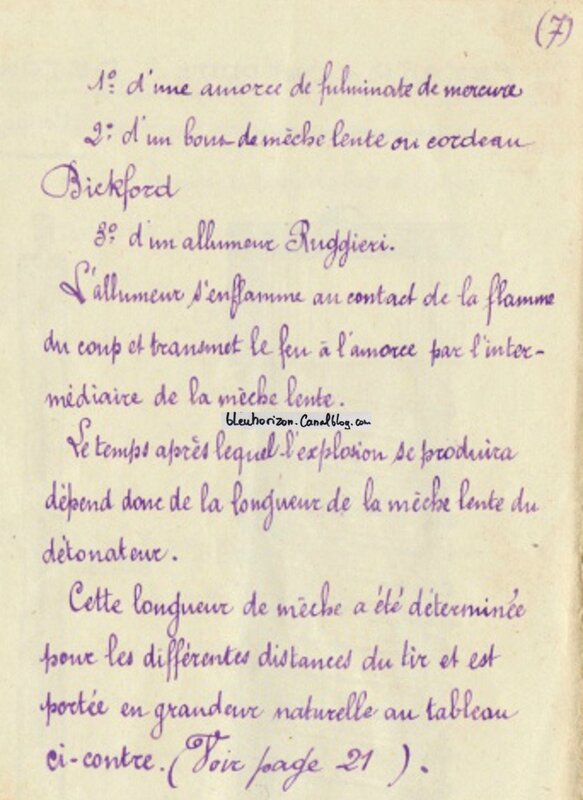 (7)
1º d'une amorce de fulminate de mercure
2º d'un bout de mèche lente ou cordeau
Bickford
3º d'un allumeur Ruggieri.
L'allumeur s'enflamme au contact de la flamme
du coup et transmet le feu à l'amorce par l'inter-
médiaire de la mèche lente.
bleuhorizon.Canalblog.com
Le temps après lequel l'explosion se produira
dépend donc de la longueur de la mèche lente du
détonateur.
Cette longueur de mèche a été déterminée
pour les différentes distances du tir et est
portée en grandeur naturelle au tableau
ci-contre. (Voir page 21 ).